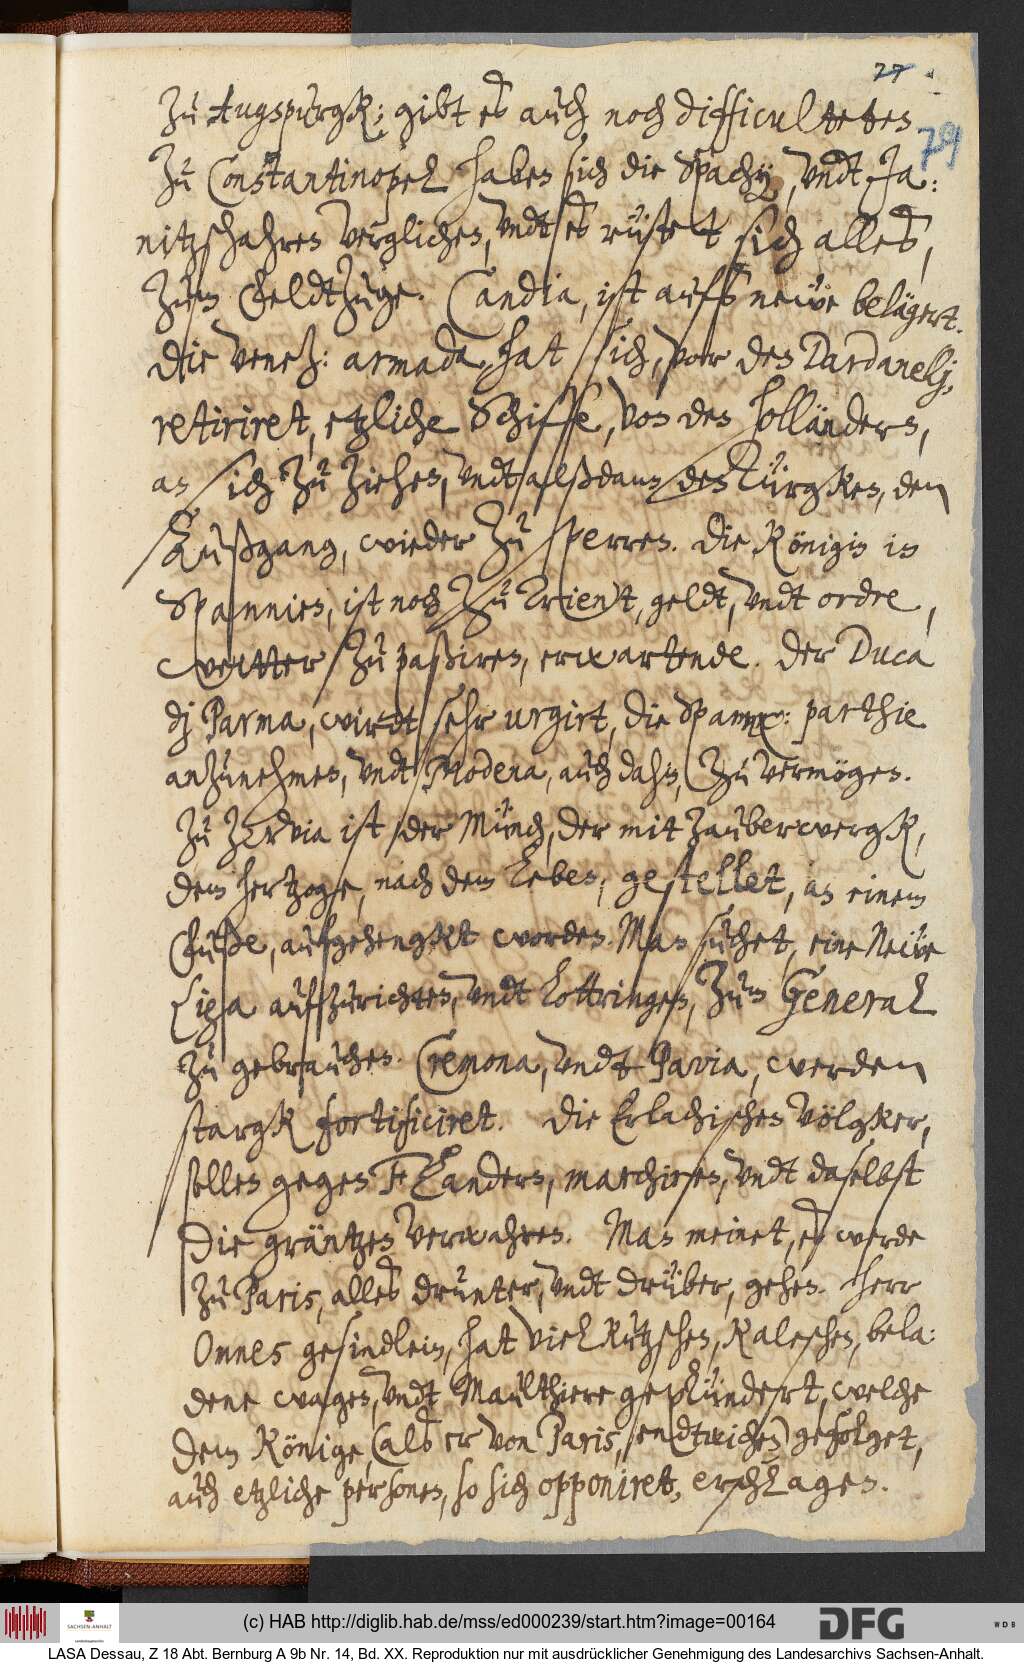 77
79
Zu Augspurgk; gibt es auch noch difficulteten
Zu Constantinopel haben sich die Spachy, undt Ja:
nitzschahren verglichen, undt es rüstet sich alles,
zum Feldtzuge. Candia, ist aufs neẅe belägert.
Die Venetz: armada, hat sich, vor den Dardanellj,
retiriret, etzliche Schiffe, von den Holländern,
an sich zu ziehen, undt alßdann den Türgken, den
Außgang, wieder zu sperren. Die Königin in
Spannien, ist noch zu Trient, geldt, undt ordre,
weitter zu paßiren, erwartende. Der Duca
dj Parma, wirdt sehr urgirt, die Spann: parthie
anzunehmen, undt Modena, auch dahin, zu vermögen.
Zu ist der Münch, der mit Zauberwergk,
dem hertzoge, nach dem Leben, gestellet, an einem
Fuße, aufgehengkt worden. Man suchet, eine Neẅe
Liga aufzurichten, undt Lottringen, zum General
zu gebrauchen. Cremona, undt Pavia, werden
stargk fortificiret. Die Erlachischen Völgker,
sollen gegen Flandern, marchiren, undt daselbst
die gräntzen verwahren. Man meinet, es werde
zu Paris, alles drunter, undt drüber, gehen. Herr
Onnes gesindlein, hat viel Kutzschen, Kaleschen, bela:
dene wagen, undt Maulthiere geplündert, welche
dem Könige, (als er von Paris, endtwichen) gefolget,
auch etzliche personen, so sich opponiret, erschlagen.
(c) HAB http://diglib.hab.de/mss/ed000239/start.htm?image=00164
SACHSEN-ANHALT
DFG
WDB
LASA Dessau, Z 18 Abt. Bernburg A 9b Nr. 14, Bd. XX. Reproduktion nur mit ausdrücklicher Genehmigung des Landesarchivs Sachsen-Anhalt.